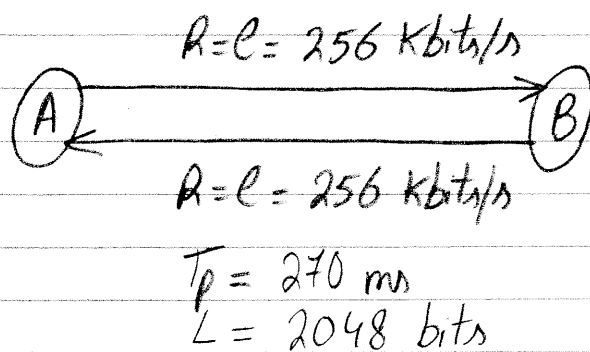 R=C= 256 Kbits/s
A B
R=C= 256 Kbits/s
Tp = 270 ms
L = 2048 bits